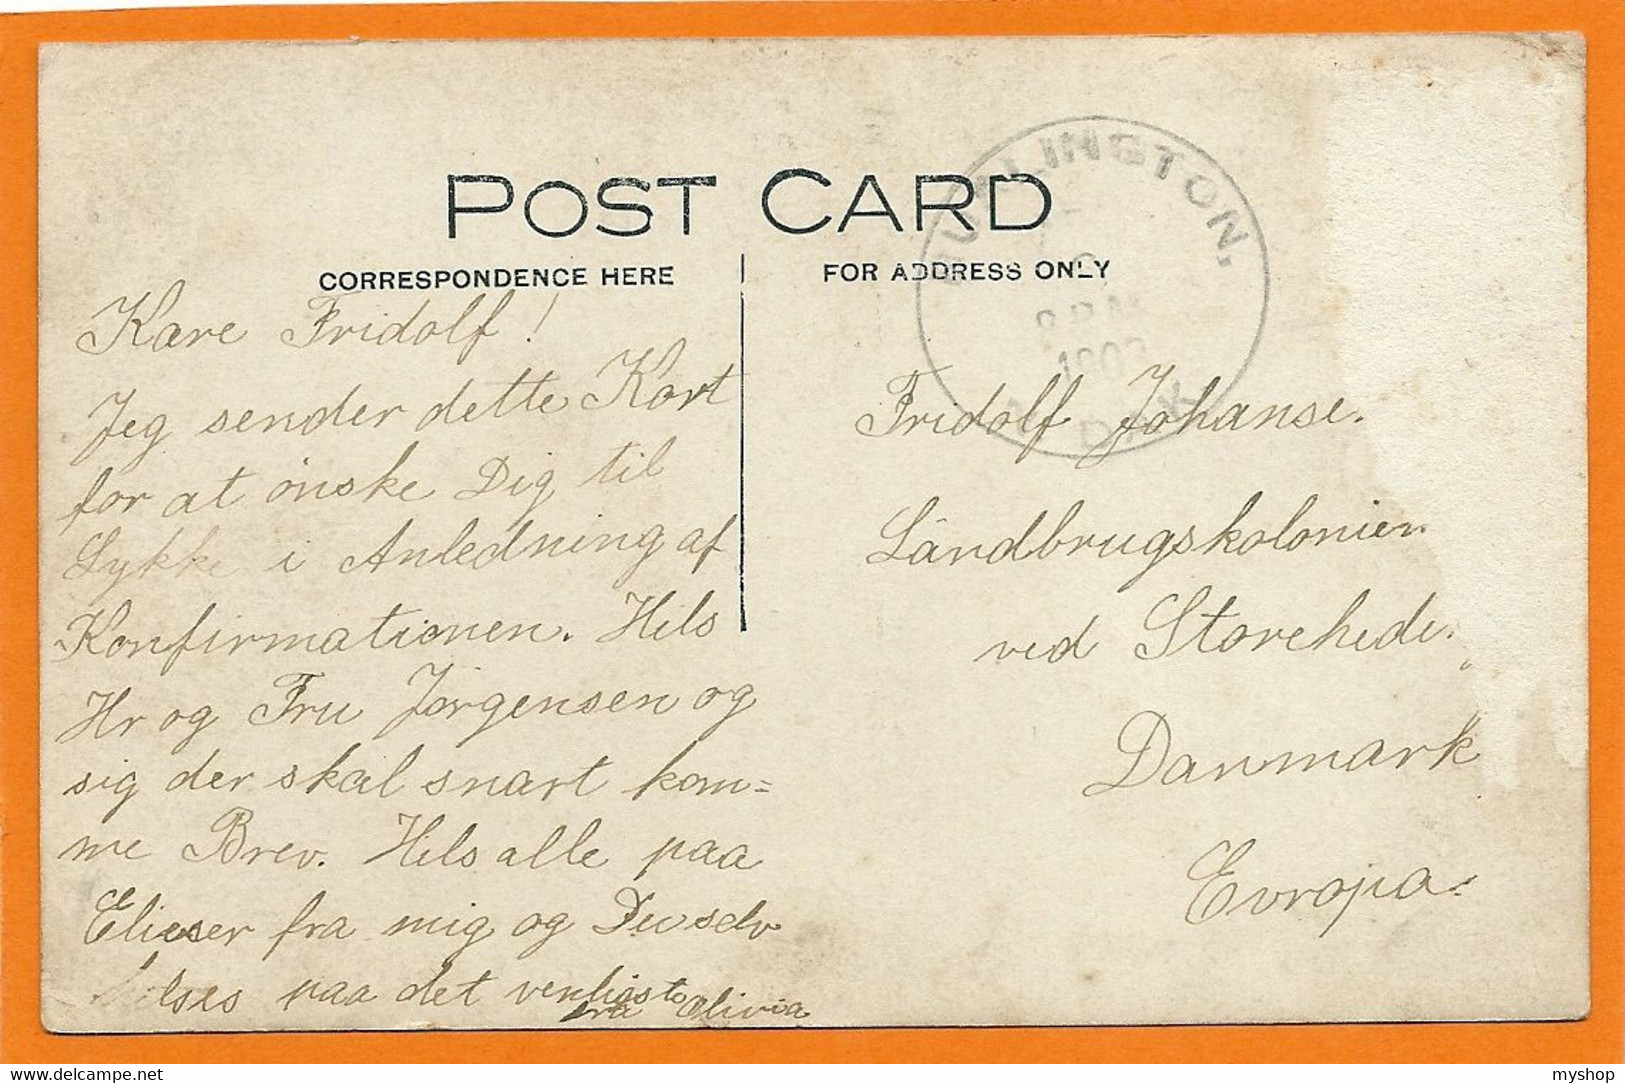 POST CARD
CORRESPONDENCE HERE
FOR ADDRESS ONLY
BURLINGTON,
8 PM
N. DAK
Kære Fridolf!
Jeg sender dette Kort
for at önske Dig til
Lykke i Anledning af
Konfirmationen. Hils
Hr og Fru Jörgensen og
sig der skal snart kom=
me Brev. Hils alle paa
fra mig og Du selv
hilses paa det venligste
fra Olivia
Fridolf Johanse.
Landbrugskolonien
ved Storehede.
Danmark
Evropa.
delcampe.net
myshop